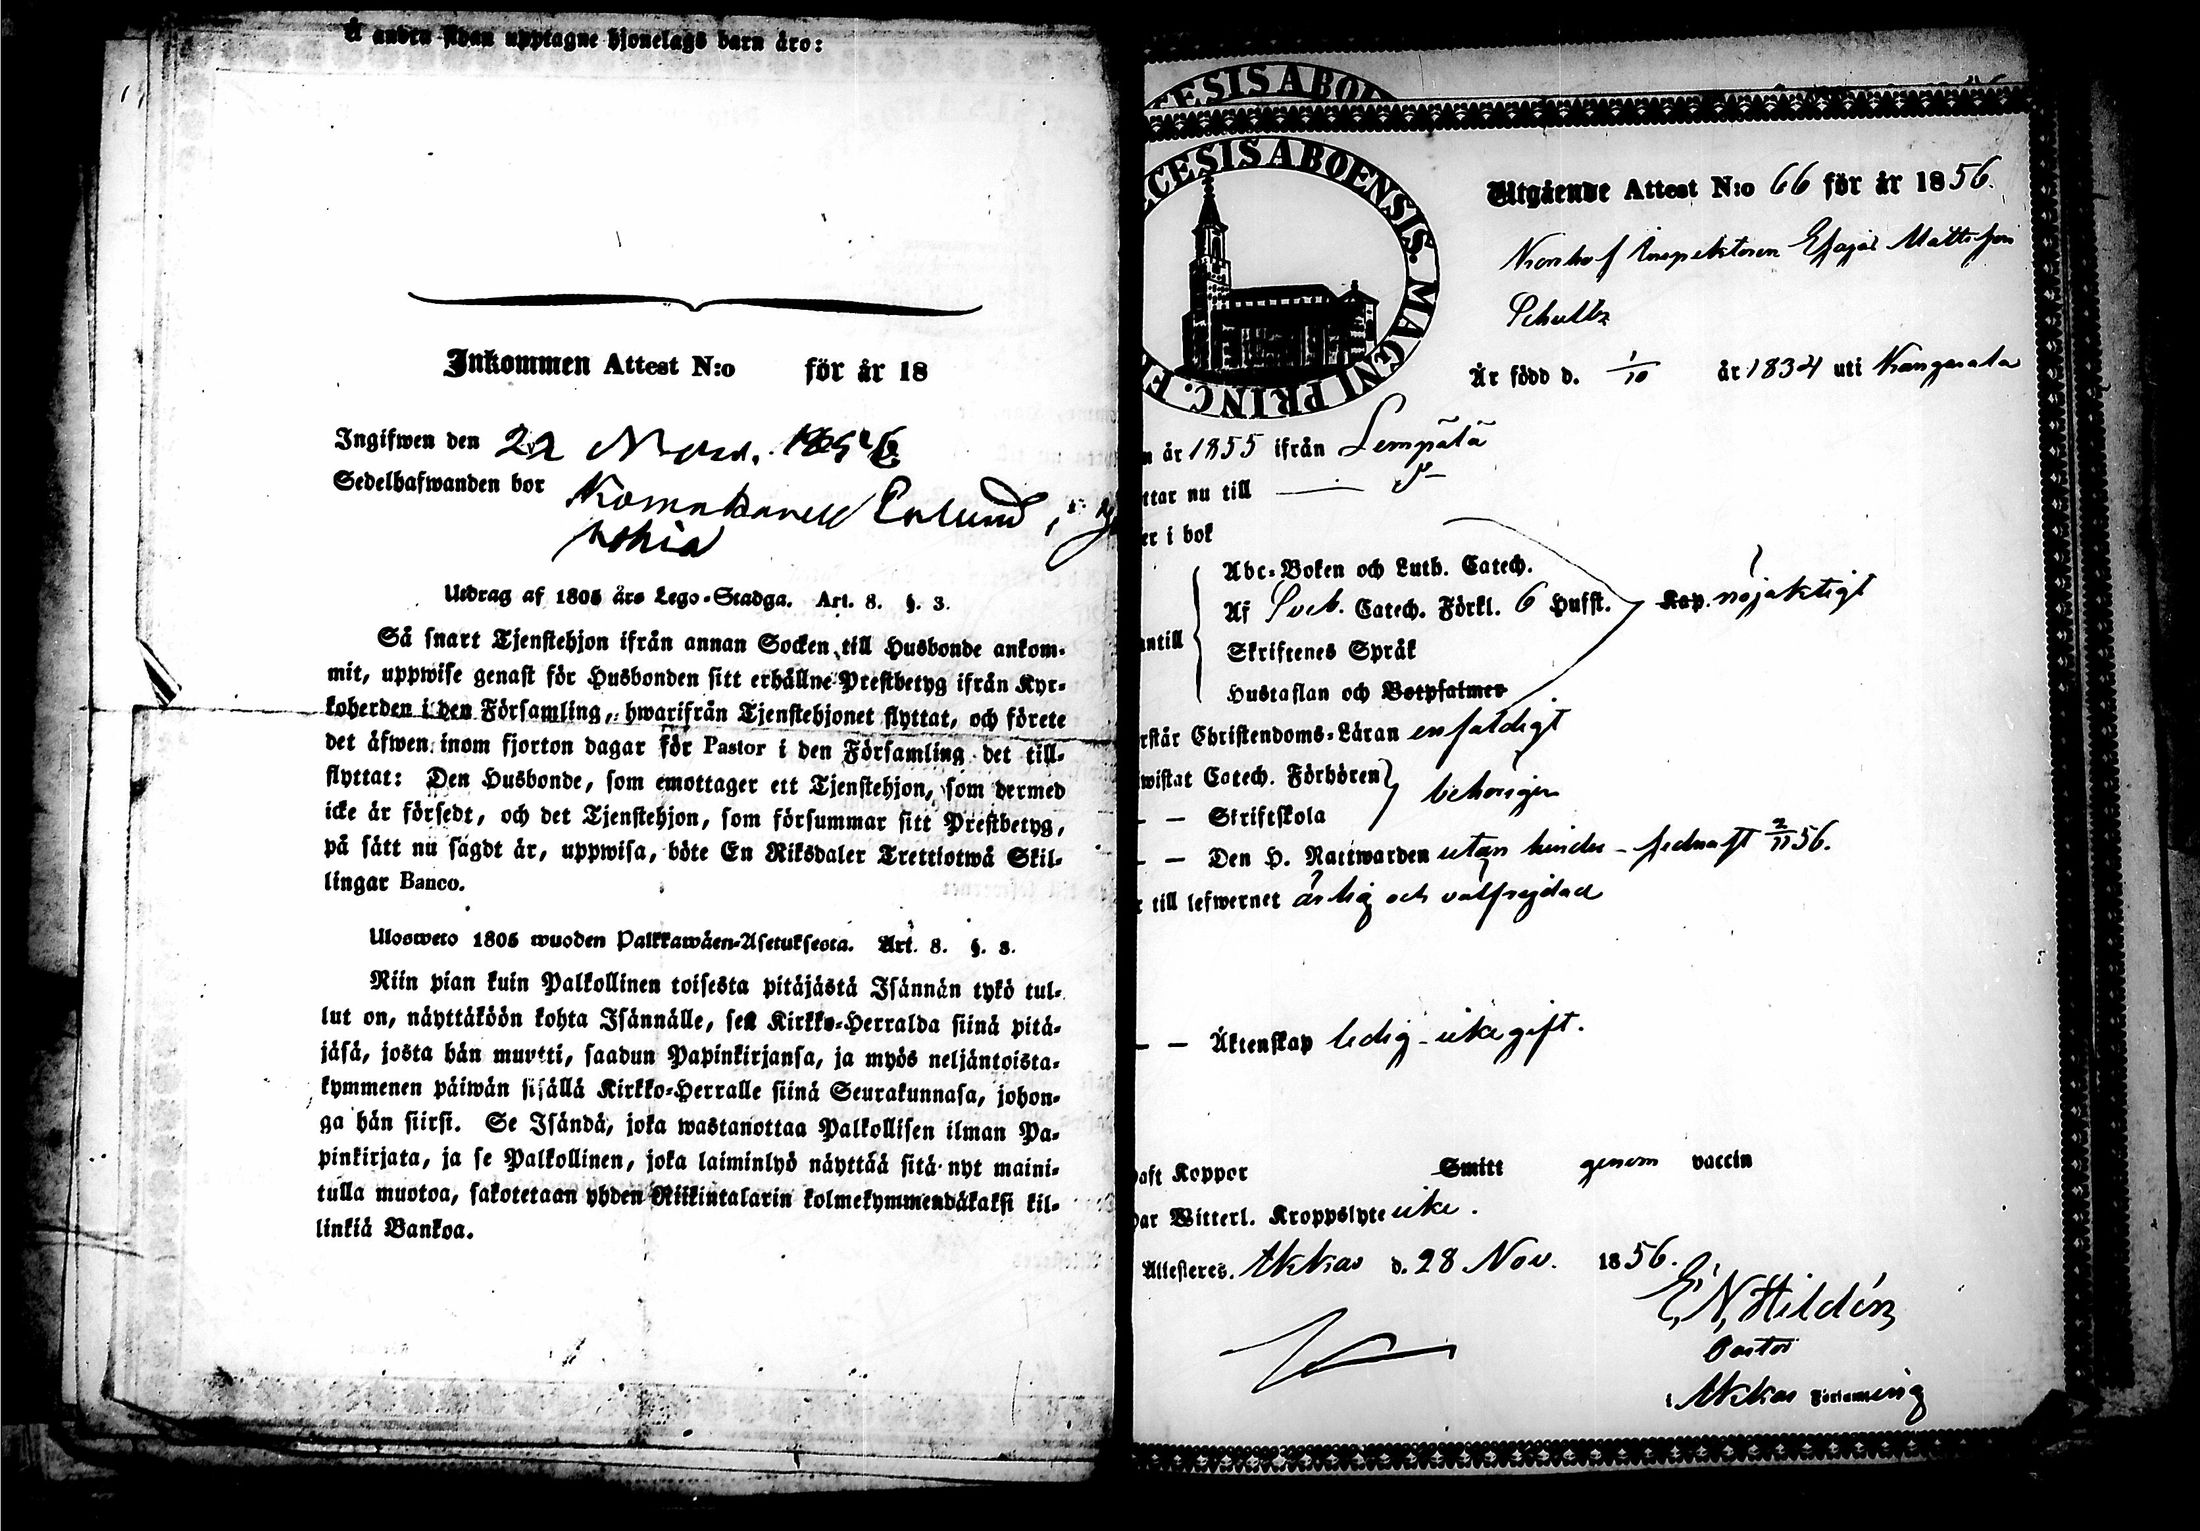 å andra sidan upptagne hjonelags barn äro:
Inkommen Attest N:o för år 18
Ingifwen den 22 Nov. 1856
Sedelhafwanden bor Erlund,
Nokia
Utdrag af 1805 års Lego-Stadga. Art. 8. §. 3.
Så snart Tjenstehjon ifrån annan Socken till Husbonde ankom-
mit, uppwise genast för Husbonden sitt erhållne Prestbetyg ifrån Kyr-
koherden i den Församling, hwarifrån Tjenstehjonet flyttat, och förete
det äfwen inom fjorton dagar för Pastor i den Församling det till-
flyttat: Den Husbonde, som emottager ett Tjenstehjon, som dermed
icke är försedt, och det Tjenstehjon, som försummar sitt Prestbetyg,
på sätt nu sagdt är, uppwisa, böte En Riksdaler Trettiotwå Skil-
lingar Banco.
Ulosweto 1805 wuoden Palkkawäen-Asetuksesta. Art. 8. §. 3.
Niin pian kuin Palkollinen toisesta pitäjästä Isännän tykö tul-
lut on, näyttäköön kohta Isännälle, sen Kirkko-Herralda siinä pitä-
jäsä, josta hän muutti, saadun Papinkirjansa, ja myös neljäntoista-
kymmenen päiwän sisällä Kirkko-Herralle siinä Seurakunnasa, johon-
ga hän siirsi. Se Isändä, joka wastanottaa Palkollisen ilman Pa-
pinkirjata, ja se Palkollinen, joka laiminlyö näyttää sitä nyt maini-
tulla muotoa, sakotetaan yhden Riikintalarin kolmekymmendäkaksi kil-
linkiä Bankoa.
CESIS ABO
CESIS ABOENSIS. MAGNI PRINC. F
Utgående Attest N:o 66 för år 1856.
Inspektoren Esajas Mattsson
Schultz
Är född d. 1/10 år 1834 uti Kangasala
n år 1855 ifrån Lempälä
ttar nu till
er i bok
Abc-Boken och Luth. Catech.
Af Sveb. Catech. Förkl. 6 Hufst. Kap. nöjaktigt
antill
Skriftenes Språk
Hustaflan och Botpsalmer
rstår Christendoms-Läran enfaldigt
wistat Catech. Förhören
behörigen
— — Skriftskola
— — Den H. Nattwarden utan hinder - sednast 2/11 56.
r till lefwernet ärlig och välfrejdad
— — Äktenskap ledig - icke gift.
haft Koppor Smitt genom vaccin
har Witterl. Kroppslyte icke.
Attesteres. Akkas d. 28 Nov. 1856.
E. N. Hildén
Pastor
i Akkas Församling